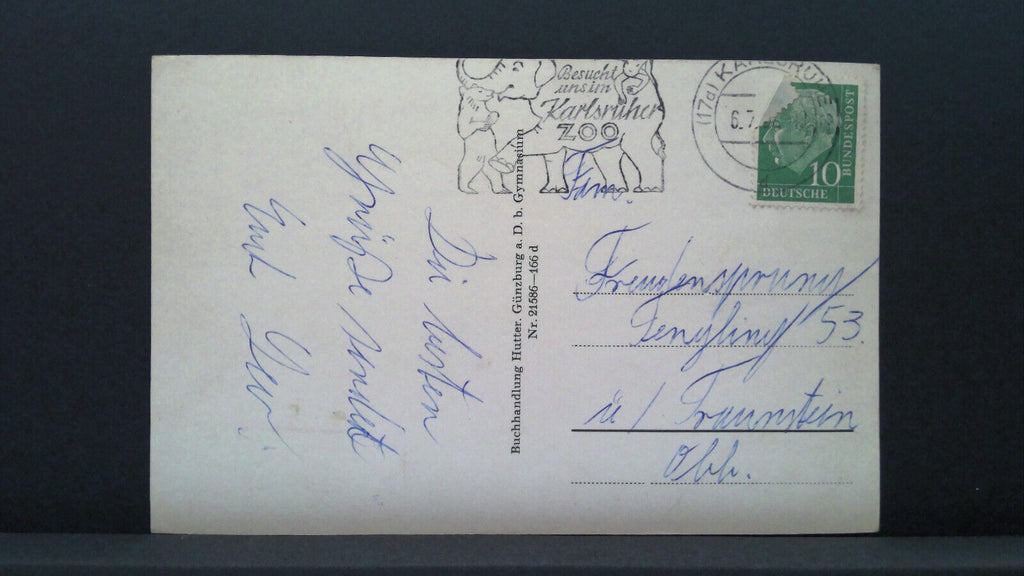 Besucht
uns im
Karlsruher
ZOO
(17a) KARLSRUHE
6.7.
10
DEUTSCHE
BUNDESPOST
Die besten
Grüße sendet
Euch
Buchhandlung Hutter. Günzburg a. D. b. Gymnasium
Nr. 21586—166 d
Fam.
Freudensprung
Tengling 53.
ü / Traunstein
Obb.